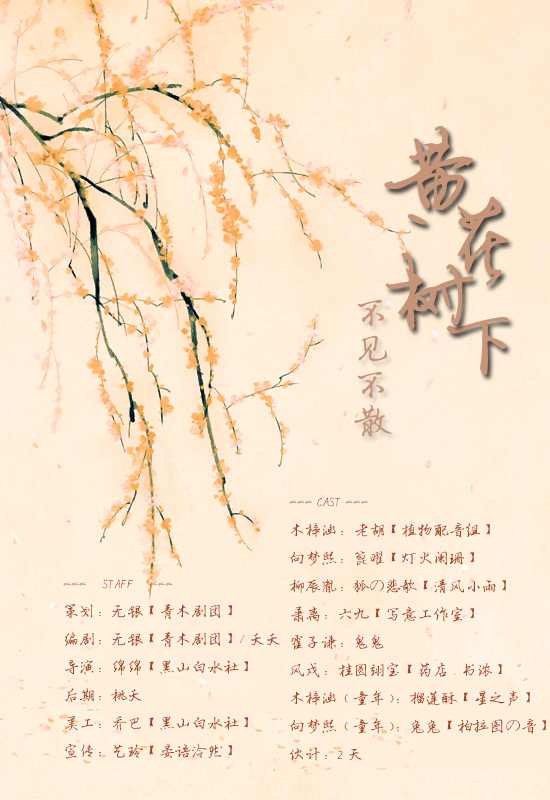 黄花树下
不见不散
CAST
木梓涵：老胡【植物配音组】
向梦熙：筱曜【灯火阑珊】
柳辰胤：狐の悲歌【清风小雨】
萧离：六九【写意工作室】
霍子谦：鬼鬼
风戎：桂圆翎宝【药店．书浓】
木梓涵（童年）：榴莲酥【星之声】
向梦熙（童年）：兔兔【柏拉图の音】
伙计：2天
STAFF
策划：无银【青木剧团】
编剧：无银【青木剧团】/天天
导演：绵绵【黑山白水社】
后期：桃夭
美工：乔巴【黑山白水社】
宣传：艺玲【晏语泠然】